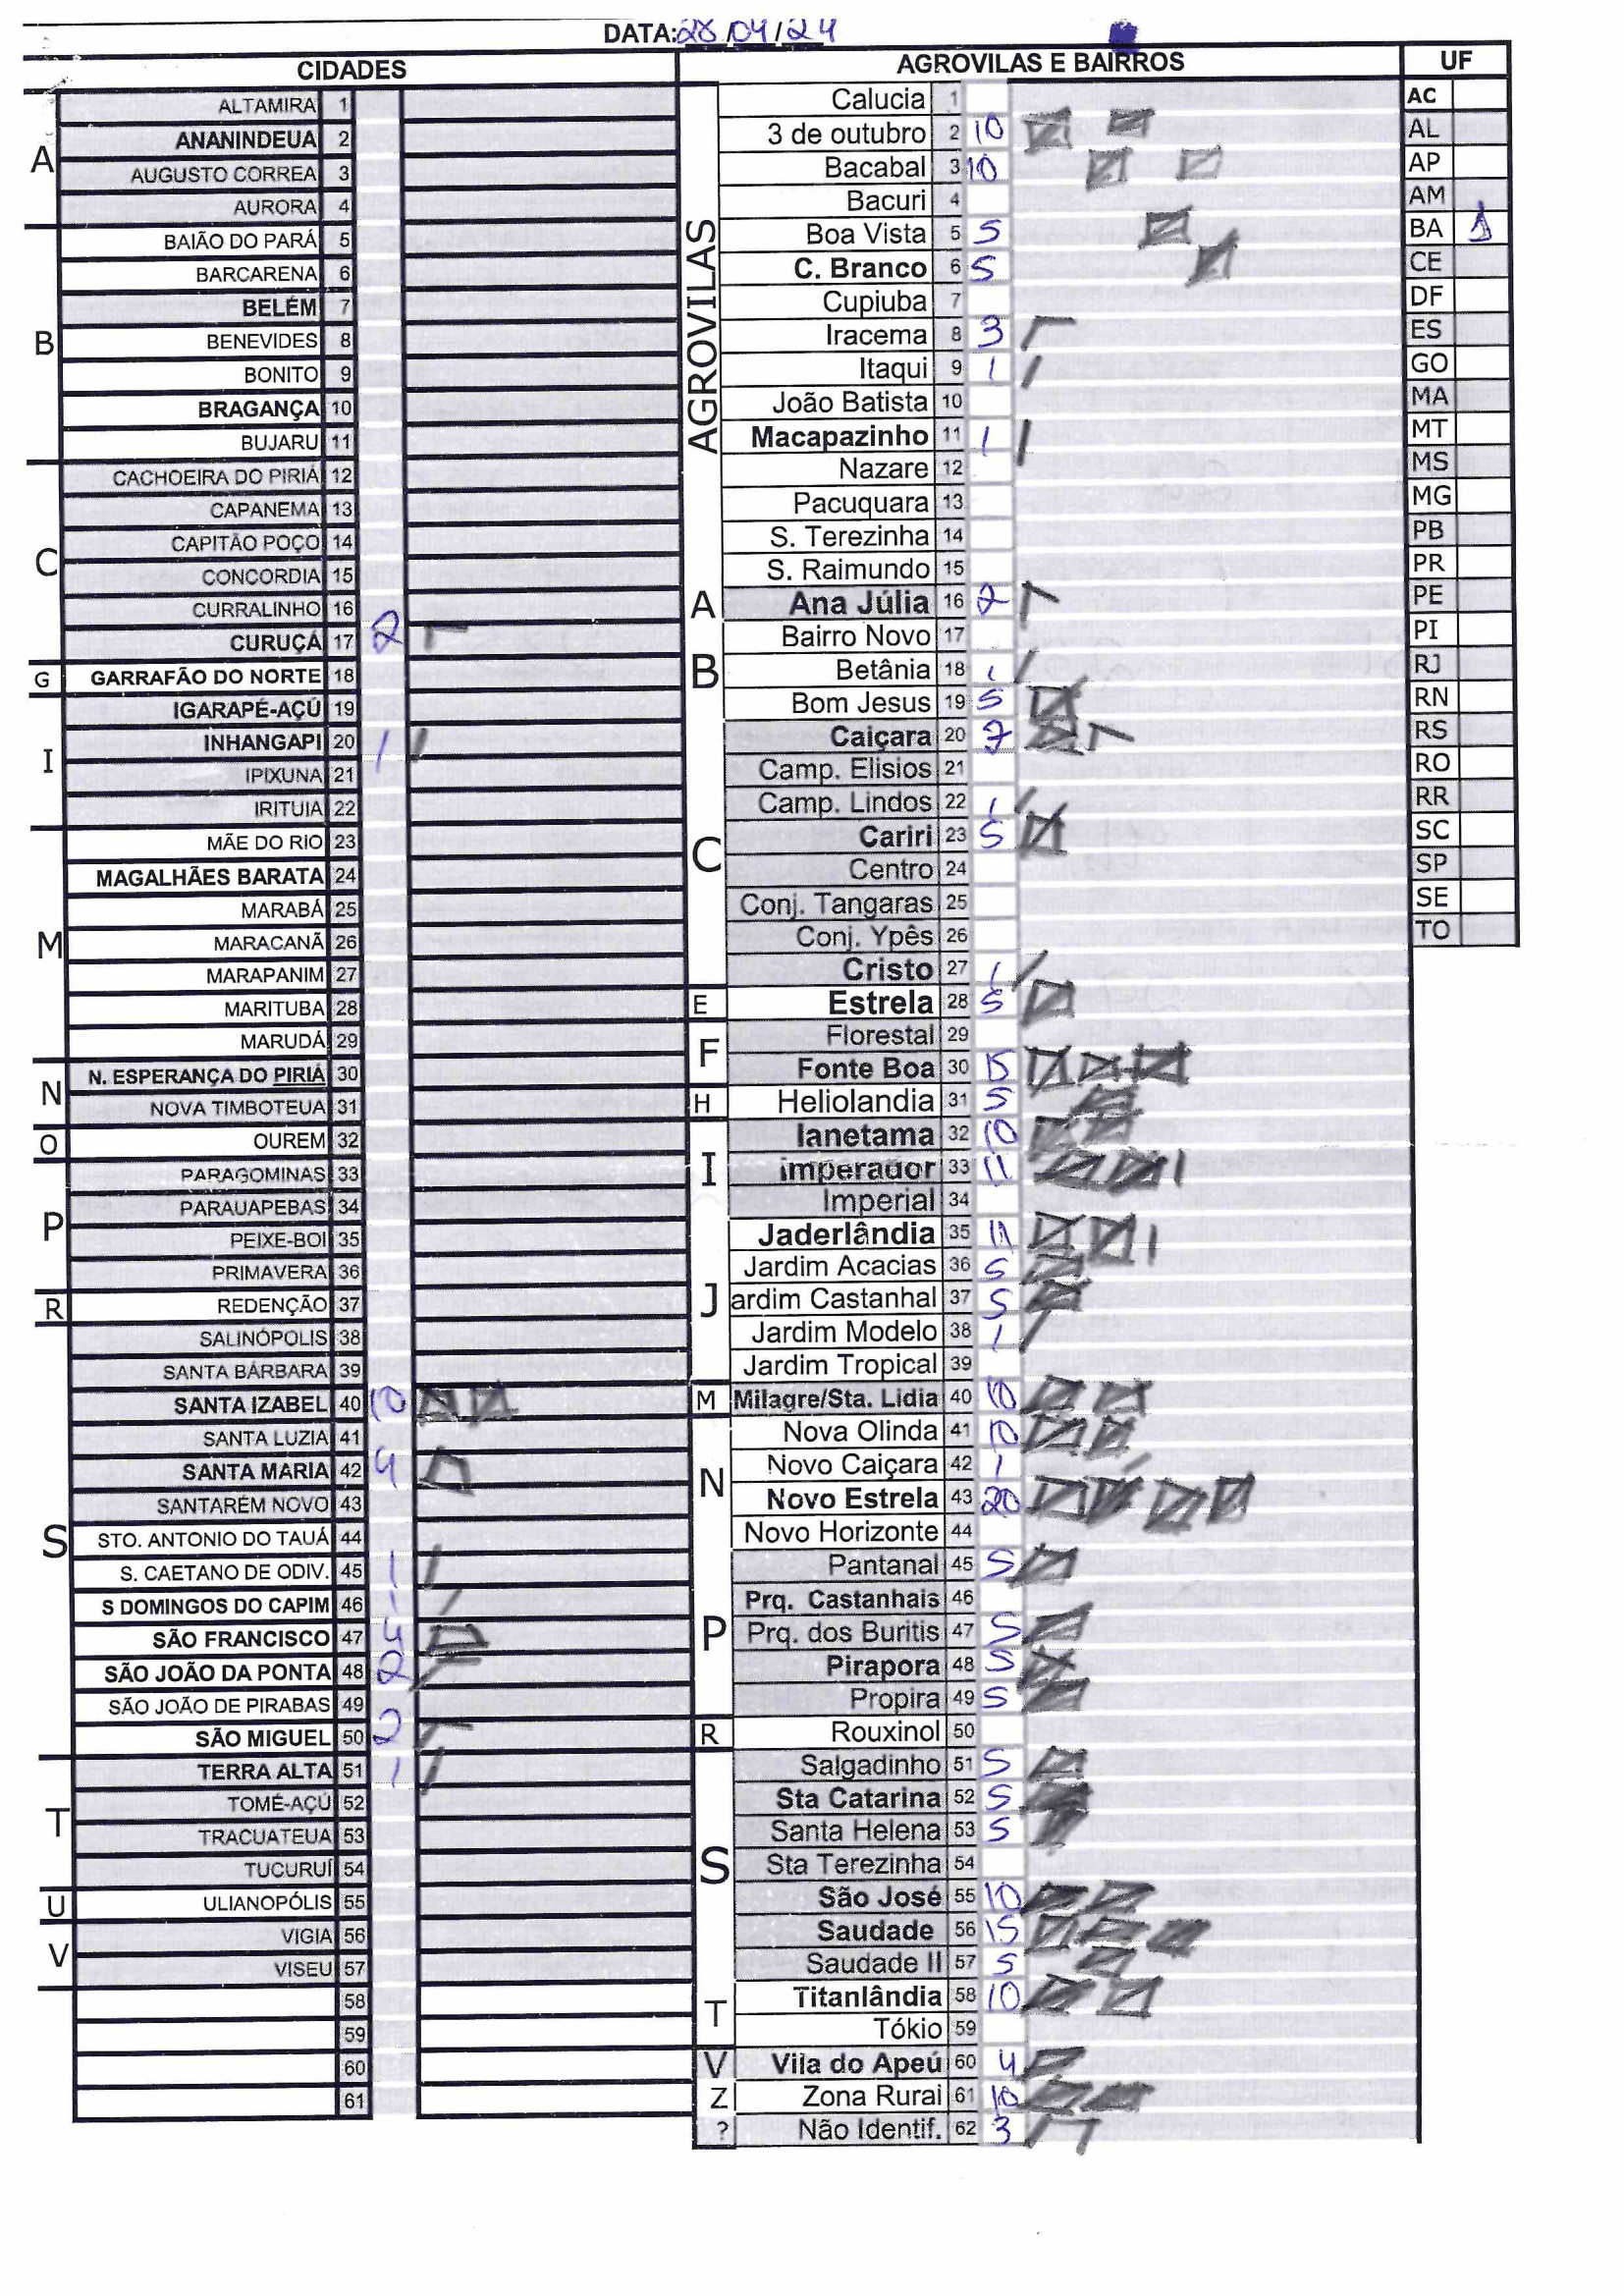 DATA: 28/04/24
CIDADES
A
ALTAMIRA 1
ANANINDEUA 2
AUGUSTO CORREA 3
AURORA 4
B
BAIÃO DO PARÁ 5
BARCARENA 6
BELÉM 7
BENEVIDES 8
BONITO 9
BRAGANÇA 10
BUJARU 11
C
CACHOEIRA DO PIRIÁ 12
CAPANEMA 13
CAPITÃO POÇO 14
CONCORDIA 15
CURRALINHO 16
CURUÇÁ 17 2
G
GARRAFÃO DO NORTE 18
I
IGARAPÉ-AÇÚ 19
INHANGAPI 20 1
IPIXUNA 21
IRITUIA 22
M
MÃE DO RIO 23
MAGALHÃES BARATA 24
MARABÁ 25
MARACANÃ 26
MARAPANIM 27
MARITUBA 28
MARUDÁ 29
N
N. ESPERANÇA DO PIRIÁ 30
NOVA TIMBOTEUA 31
O
OUREM 32
P
PARAGOMINAS 33
PARAUAPEBAS 34
PEIXE-BOI 35
PRIMAVERA 36
R
REDENÇÃO 37
S
SALINÓPOLIS 38
SANTA BÁRBARA 39
SANTA IZABEL 40 10
SANTA LUZIA 41
SANTA MARIA 42 4
SANTARÉM NOVO 43
STO. ANTONIO DO TAUÁ 44
S. CAETANO DE ODIV. 45 1
S DOMINGOS DO CAPIM 46 1
SÃO FRANCISCO 47 4
SÃO JOÃO DA PONTA 48 2
SÃO JOÃO DE PIRABAS 49
SÃO MIGUEL 50 2
T
TERRA ALTA 51 1
TOMÉ-AÇÚ 52
TRACUATEUA 53
TUCURUÍ 54
U
ULIANOPÓLIS 55
V
VIGIA 56
VISEU 57
58
59
60
61
AGROVILAS E BAIRROS
AGROVILAS
Calucia 1
3 de outubro 2 10
Bacabal 3 10
Bacuri 4
Boa Vista 5 5
C. Branco 6 5
Cupiuba 7
Iracema 8 3
Itaqui 9 1
João Batista 10
Macapazinho 11 1
Nazare 12
Pacuquara 13
S. Terezinha 14
S. Raimundo 15
A
Ana Júlia 16 2
B
Bairro Novo 17
Betânia 18 1
Bom Jesus 19 5
C
Caiçara 20 7
Camp. Elisios 21
Camp. Lindos 22 1
Cariri 23 5
Centro 24
Conj. Tangaras 25
Conj. Ypês 26
Cristo 27 1
E
Estrela 28 5
F
Florestal 29
Fonte Boa 30 15
H
Heliolandia 31 5
I
Ianetama 32 10
imperador 33 11
Imperial 34
J
Jaderlândia 35 11
Jardim Acacias 36 5
ardim Castanhal 37 5
Jardim Modelo 38 1
Jardim Tropical 39
M
Milagre/Sta. Lidia 40 10
N
Nova Olinda 41 10
Novo Caiçara 42 1
Novo Estrela 43 20
Novo Horizonte 44
P
Pantanal 45 5
Prq. Castanhais 46
Prq. dos Buritis 47 5
Pirapora 48 5
Propira 49 5
R
Rouxinol 50
S
Salgadinho 51 5
Sta Catarina 52 5
Santa Helena 53 5
Sta Terezinha 54
São José 55 10
Saudade 56 15
Saudade II 57 5
T
Titanlândia 58 10
Tókio 59
V
Vila do Apeú 60 4
Z
Zona Rural 61 10
?
Não Identif. 62 3
UF
AC
AL
AP
AM
BA 1
CE
DF
ES
GO
MA
MT
MS
MG
PB
PR
PE
PI
RJ
RN
RS
RO
RR
SC
SP
SE
TO